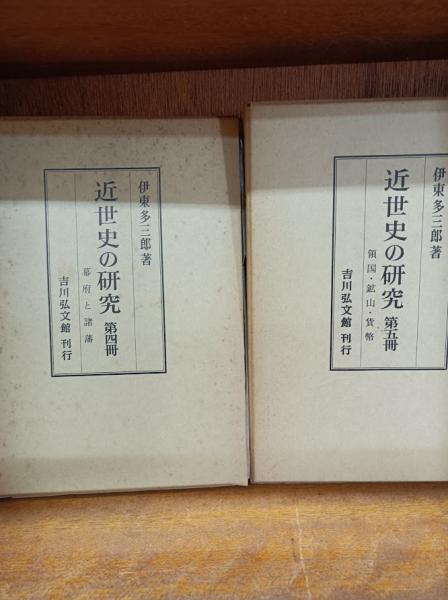 伊東多三郎著
近世史の研究 第四冊
幕府と諸藩
吉川弘文館 刊行
伊東多三郎著
近世史の研究 第五冊
領国・鉱山・貨幣
吉川弘文館 刊行